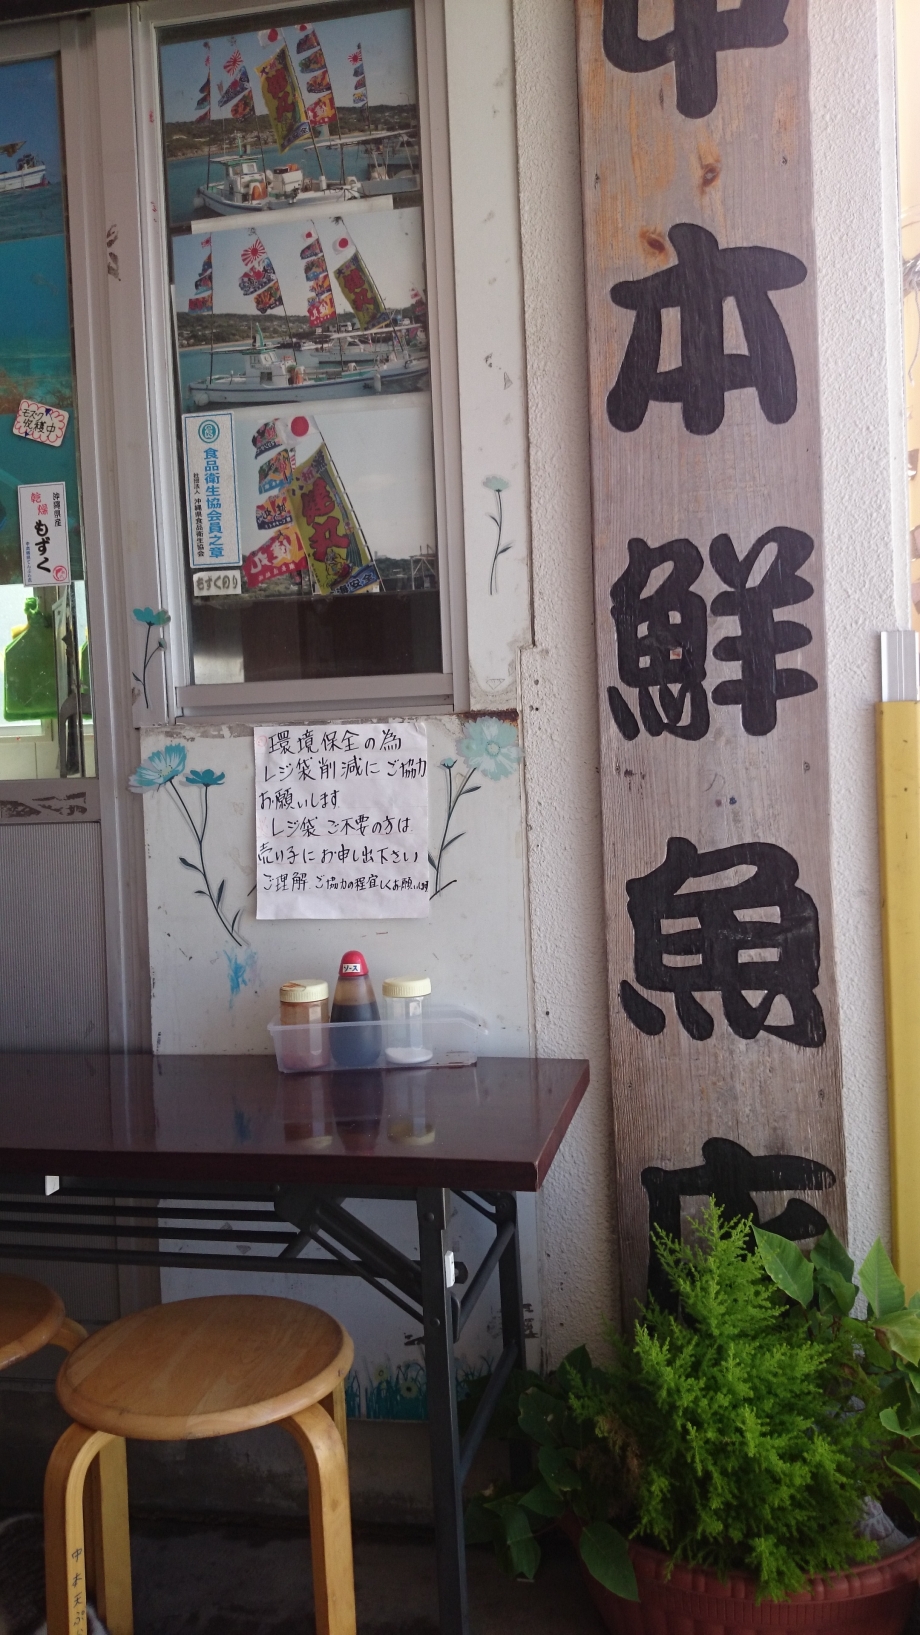 中本鮮魚店
モズク
収穫中
沖縄県産
乾燥
もずく
食品衛生協会員之章
社団法人 沖縄県食品衛生協会
もずくのり
環境保全の為
レジ袋削減にご協力
お願いします
レジ袋 ご不要の方は
売り子にお申し出下さい
ご理解 ご協力の程宜しくお願い
ソース
中本天ぷら